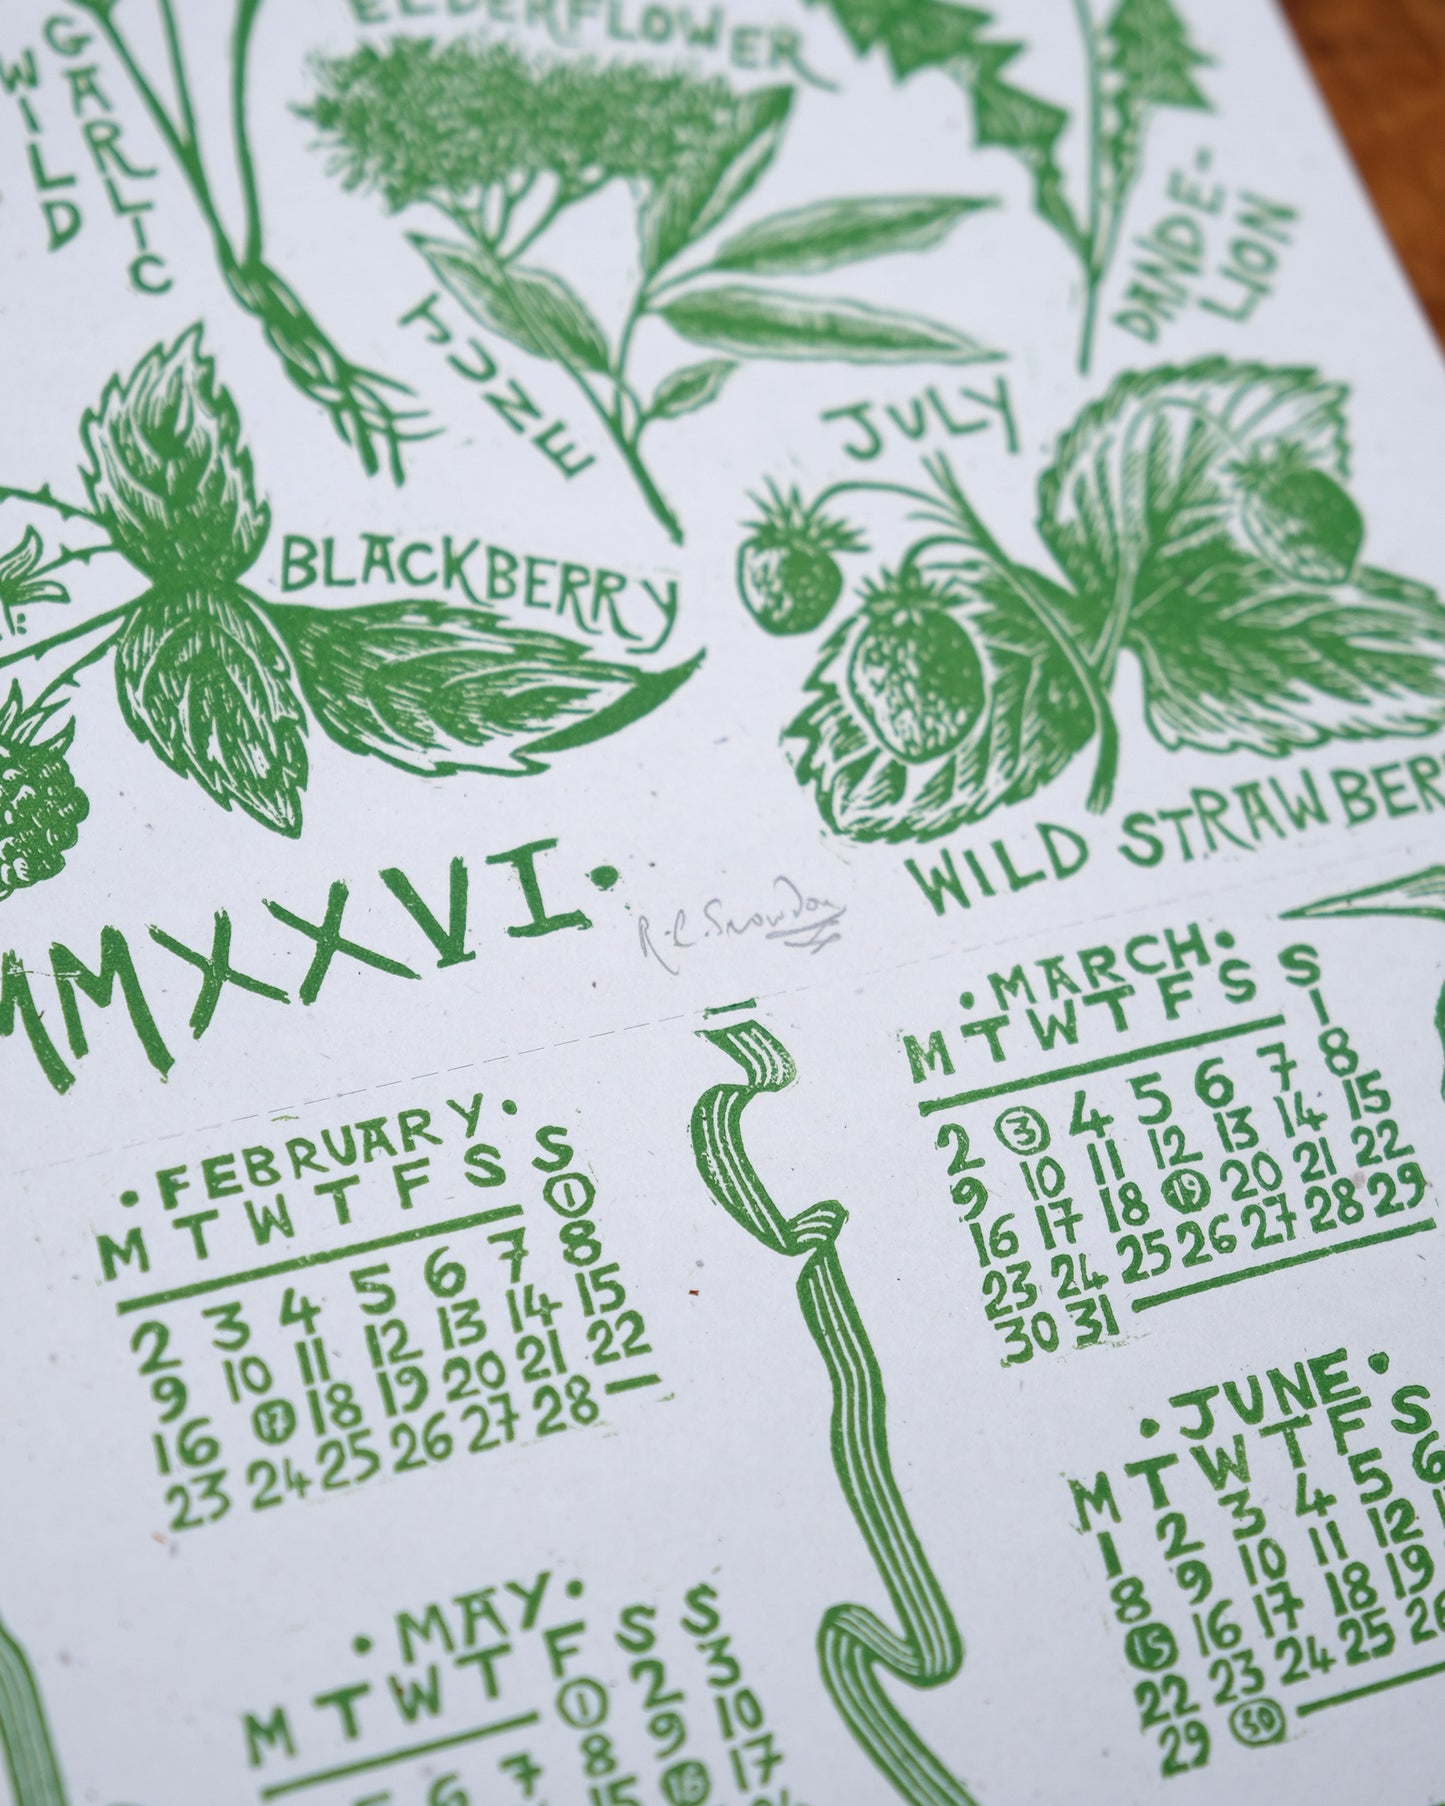 ELDERFLOWER
WILD
GARLIC
DANDE-
LION
JUNE
JULY
BLACKBERRY
WILD STRAWBER
MMXXVI.
R.C. Snowdon
• FEBRUARY •
M T W T F S S
1
2 3 4 5 6 7 8
9 10 11 12 13 14 15
16 17 18 19 20 21 22
23 24 25 26 27 28
• MARCH •
M T W T F S S
1
2 3 4 5 6 7 8
9 10 11 12 13 14 15
16 17 18 19 20 21 22
23 24 25 26 27 28 29
30 31
• MAY •
M T W T F S S
1 2 3
6 7 8 9 10
15 16 17
• JUNE •
M T W T F S
1 2 3 4 5 6
8 9 10 11 12
15 16 17 18 19
22 23 24 25 26
29 30